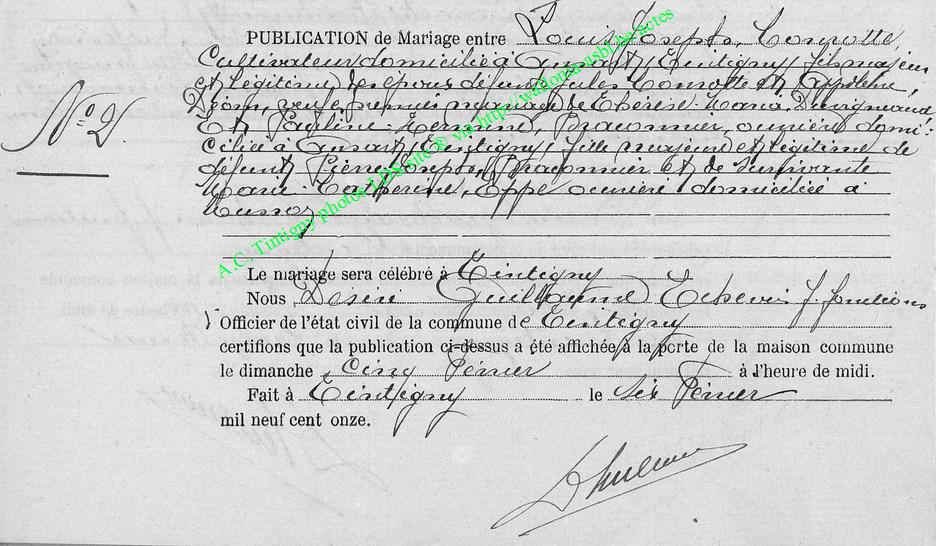 No 2.
PUBLICATION de Mariage entre Louis Joseph, Cornotte,
Cultivateur domicilié à Ansart, Tintigny, fils majeur
et légitime des époux défunts Jules Cornotte et
veuf en premier mariage de Thérèse-Maria,
Et Pauline Braconnier, ouvrière domi-
ciliée à Ansart, Tintigny, fille majeure et légitime de
défunt Pierre Joseph, Braconnier et de survivante
Marie-Catherine, Eppe ouvrière domiciliée à
Le mariage sera célébré à Tintigny
Nous, Désiré Guillaume
Officier de l'état civil de la commune de Tintigny
certifions que la publication ci-dessus a été affichée à la porte de la maison commune
le dimanche cinq Février à l'heure de midi.
Fait à Tintigny le six Février
mil neuf cent onze.
A.C. Tintigny photos LDS site © via http://wallonia-asbl.be/actes